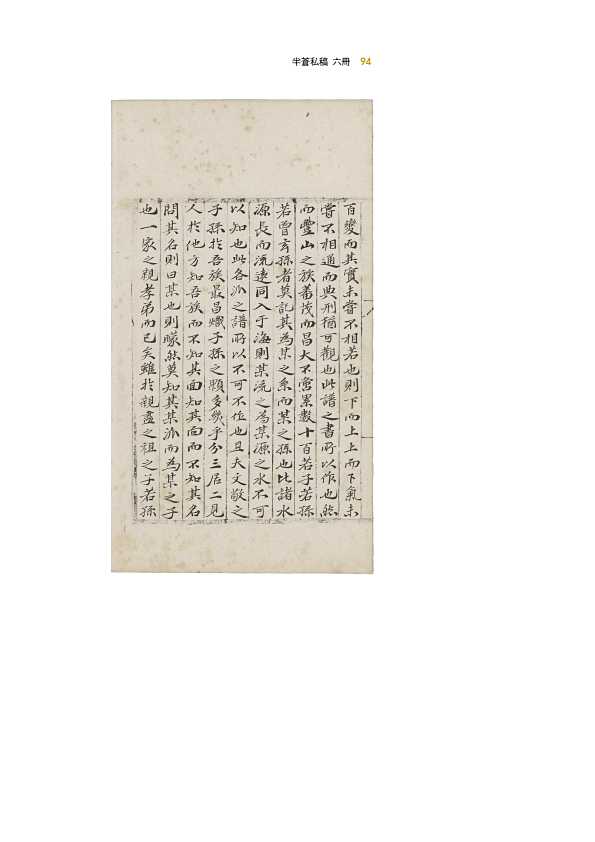 半蒼私稿 六冊 94
百變而其實未嘗不相若也則下而上上而下氣未
嘗不相通而典刑猶可觀也此譜之書所以作也然
而豐山之族蕃茂而昌大不啻累數十百若子若孫
若曾玄孫者莫記其為某之系而某之孫也比諸水
源長而流遠同入于海則某流之為某源之水不可
以知也此各派之譜所以不可不作也且夫文敬之
子孫於吾族最昌熾子孫之頗多幾乎分三居二見
人於他方知吾族而不知其面知其面而不知其名
問其名則曰某也則矇然莫知其某派而為某之子
也一家之親孝弟而已矣雖於親盡之祖之子若孫